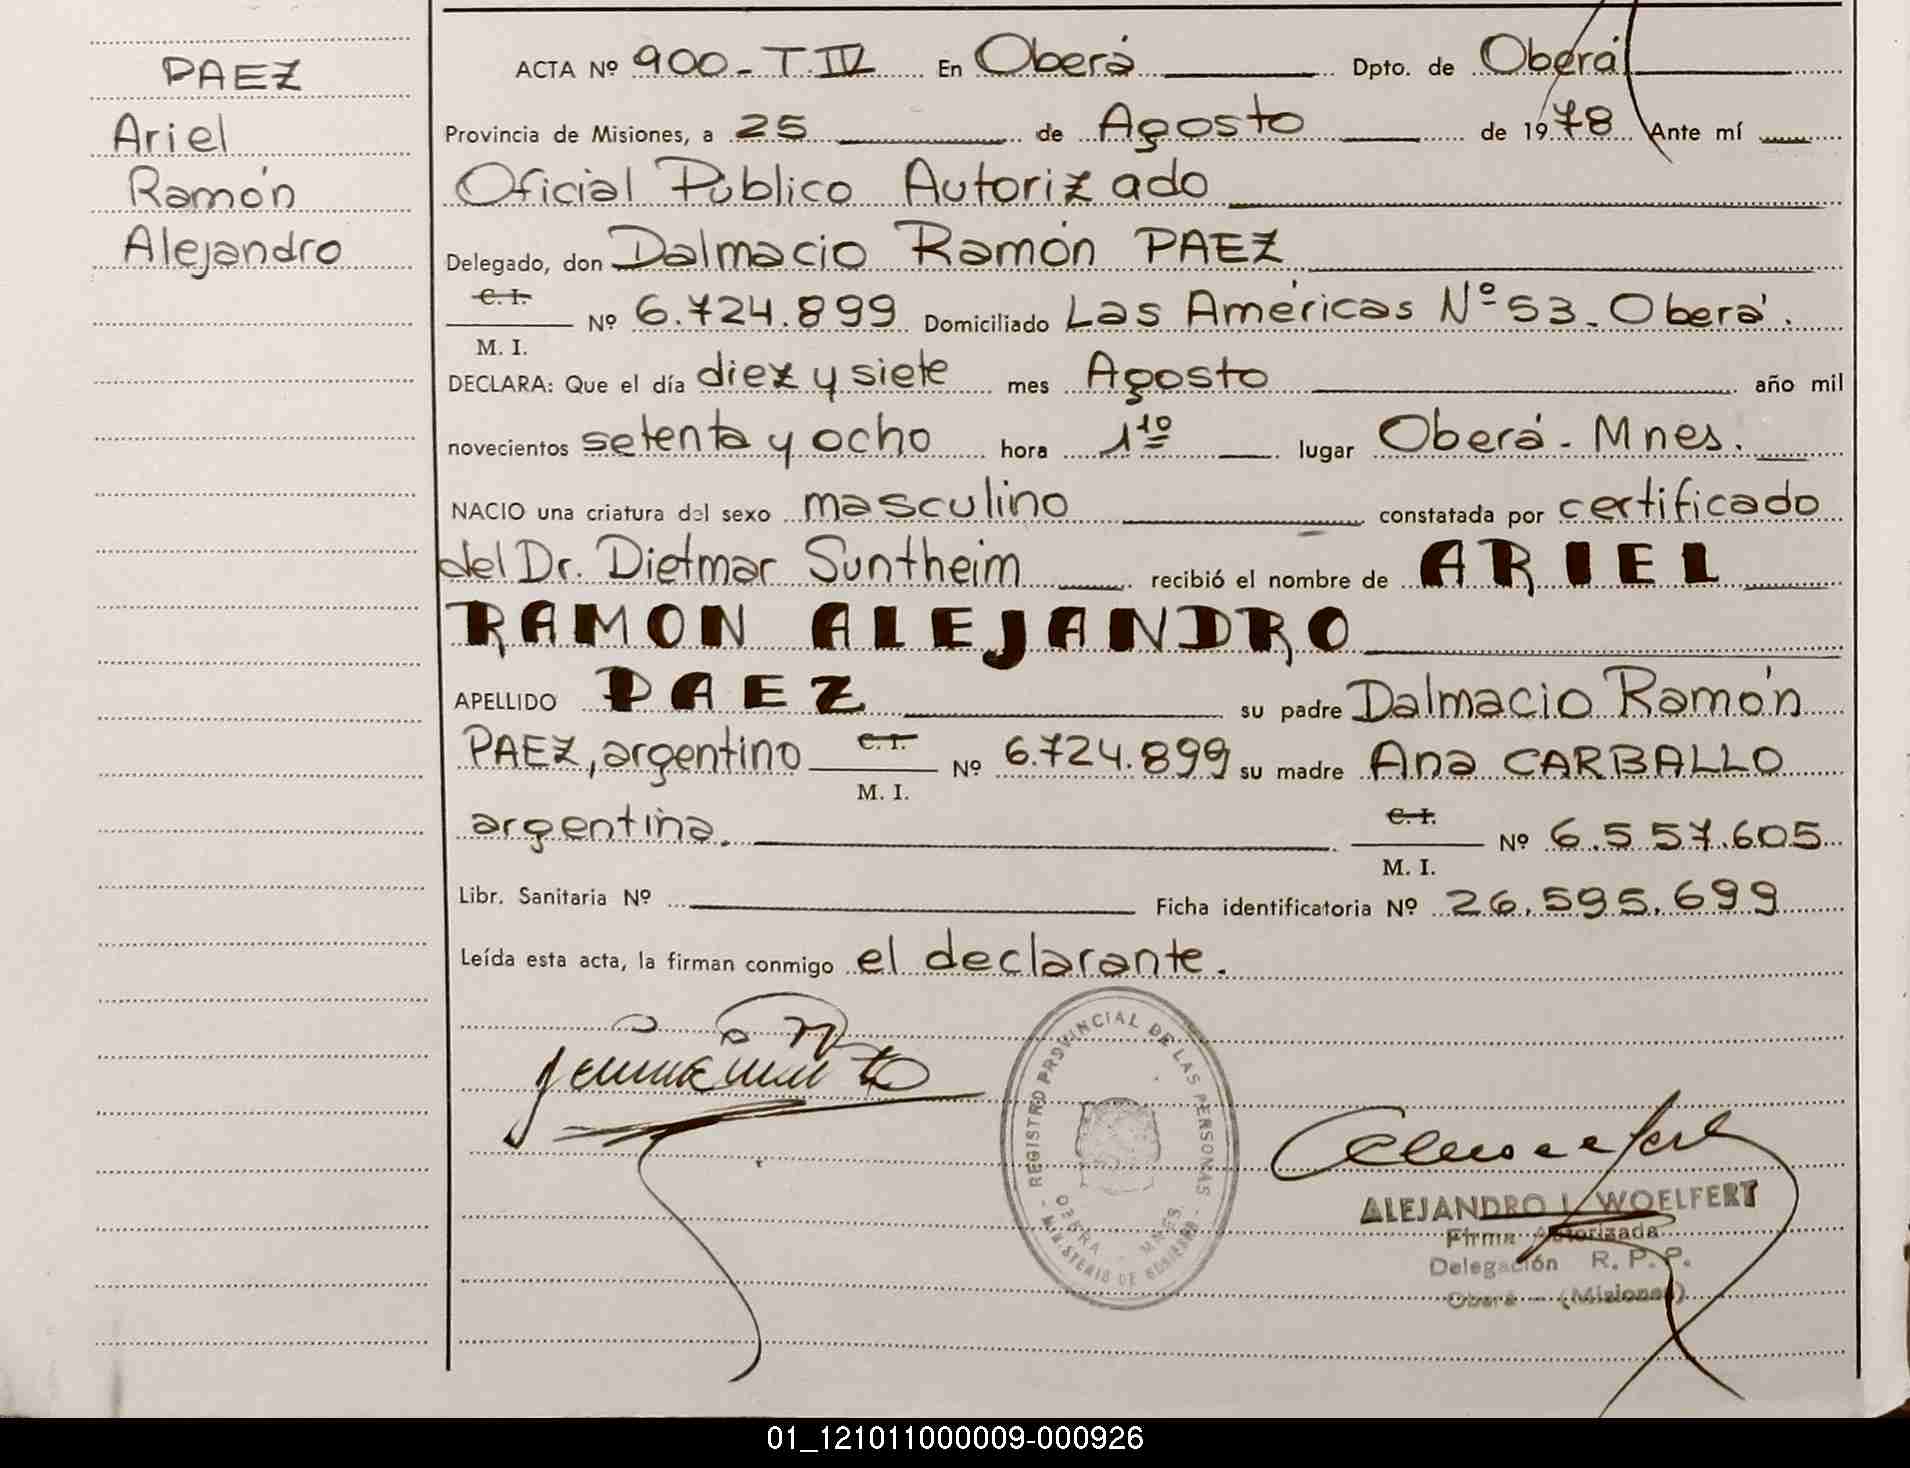 PAEZ
Ariel
Ramón
Alejandro
ACTA Nº 900-T.IV En Oberá Dpto. de Oberá
Provincia de Misiones, a 25 de Agosto de 1978 Ante mí
Oficial Público Autorizado
Delegado, don Dalmacio Ramón PAEZ
C. I.
Nº 6.724.899 Domiciliado Las Américas Nº 53-Oberá.
M. I.
DECLARA: Que el día diez y siete mes Agosto año mil
novecientos setenta y ocho hora 1¹⁰ lugar Oberá-Mnes.
NACIO una criatura del sexo masculino constatada por certificado
del Dr. Dietmar Suntheim recibió el nombre de ARIEL
RAMON ALEJANDRO
APELLIDO PAEZ su padre Dalmacio Ramón
PAEZ, argentino C. I. Nº 6.724.899 su madre Ana CARBALLO
M. I.
argentina. C. I. Nº 6.557.605
M. I.
Libr. Sanitaria Nº Ficha identificatoria Nº 26.595.699
Leída esta acta, la firman conmigo el declarante.
- REGISTRO PROVINCIAL DE LAS PERSONAS -
OBERA - MNES.
MINISTERIO DE GOBIERNO
ALEJANDRO L. WOELFERT
Firma Autorizada
Delegación R. P. P.
Oberá - (Misiones)
01_121011000009-000926